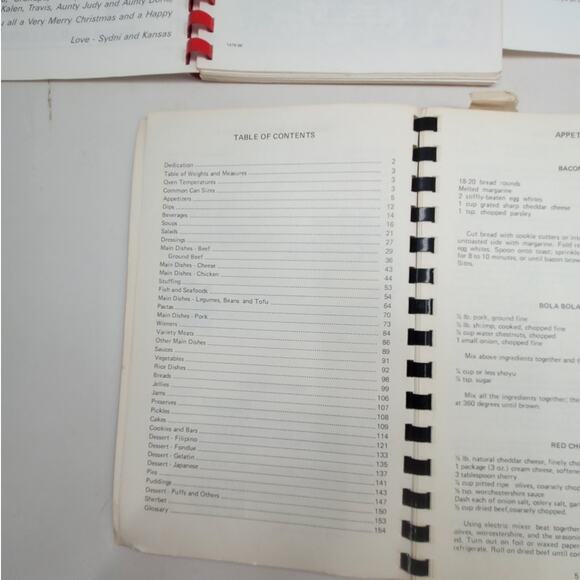 Kalen, Travis, Aunty Judy and Aunty
u all a Very Merry Christmas and a Happy
Love - Sydni and Kansas
TABLE OF CONTENTS
Dedication 2
Table of Weights and Measures 3
Oven Temperatures 3
Common Can Sizes 3
Appetizers 5
Dips 12
Beverages 14
Soups 16
Salads 21
Dressings 27
Main Dishes - Beef 29
Ground Beef 36
Main Dishes - Cheese 43
Main Dishes - Chicken 44
Stuffing 53
Fish and Seafoods 54
Main Dishes - Legumes, Beans and Tofu 64
Pastas 70
Main Dishes - Pork 73
Wieners 84
Variety Meats 86
Other Main Dishes 89
Sauces 91
Vegetables 92
Rice Dishes 98
Breads 99
Jellies 106
Jams 107
Preserves 108
Pickles 109
Cakes 114
Cookies and Bars 121
Dessert - Filipino 133
Dessert - Fondue 135
Dessert - Gelatin 137
Dessert - Japanese 141
Pies 143
Puddings 147
Dessert - Puffs and Others 150
Sherbet 153
Glossary 154
APPET
BACON
18-20 bread rounds
Melted margarine
2 stiffly-beaten egg whites
1 cup grated sharp cheddar cheese
1 tsp. chopped parsley
Cut bread with cookie cutters or int
untoasted side with margarine. Fold
egg whites. Spoon onto toast; sprinkle
for 8 to 10 minutes, or until bacon brow
BOLA BOLA
lb. pork, ground fine
lb. shrimp, cooked, chopped fine
cup water chestnuts, chopped
1 small onion, chopped fine
Mix above ingredients together and
cup or less shoyu
tsp. sugar
Mix all the ingredients together; the
at 360 degrees until brown.
RED CH
lb. natural cheddar cheese, finely cho
1 package (3 oz.) cream cheese, softene
3 tablespoon sherry
cup pitted ripe olives, coarsely chop
tsp. worchestershire sauce
Dash each of onion salt, celery salt, gar
cup dried beef,coarsely chopped.
Using electric mixer beat together
olives, worcestershire, and the seasonin
nd. Turn out on foil or waxed paper
efrigerate. Roll on dried beef until co